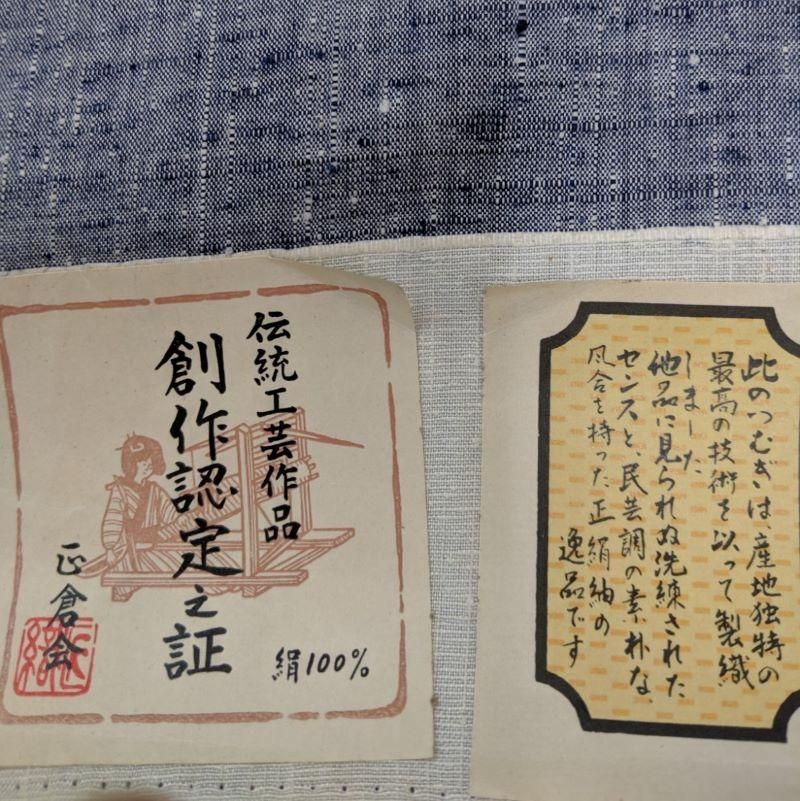 伝統工芸作品
創作認定之証
正倉会
絹100%
此のつむぎは、産地独特の
最高の技術を以って製織
しました
他品に見られぬ洗練された
センスと、民芸調の素朴な
風合を持った正絹紬の
逸品です